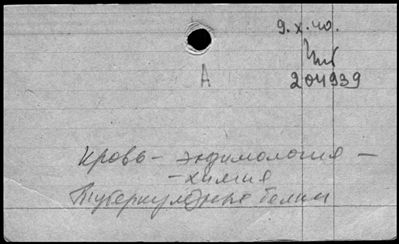 9.X.40.
A
204939
Кровь - энзимология -
- химия
Туберкулезные белки